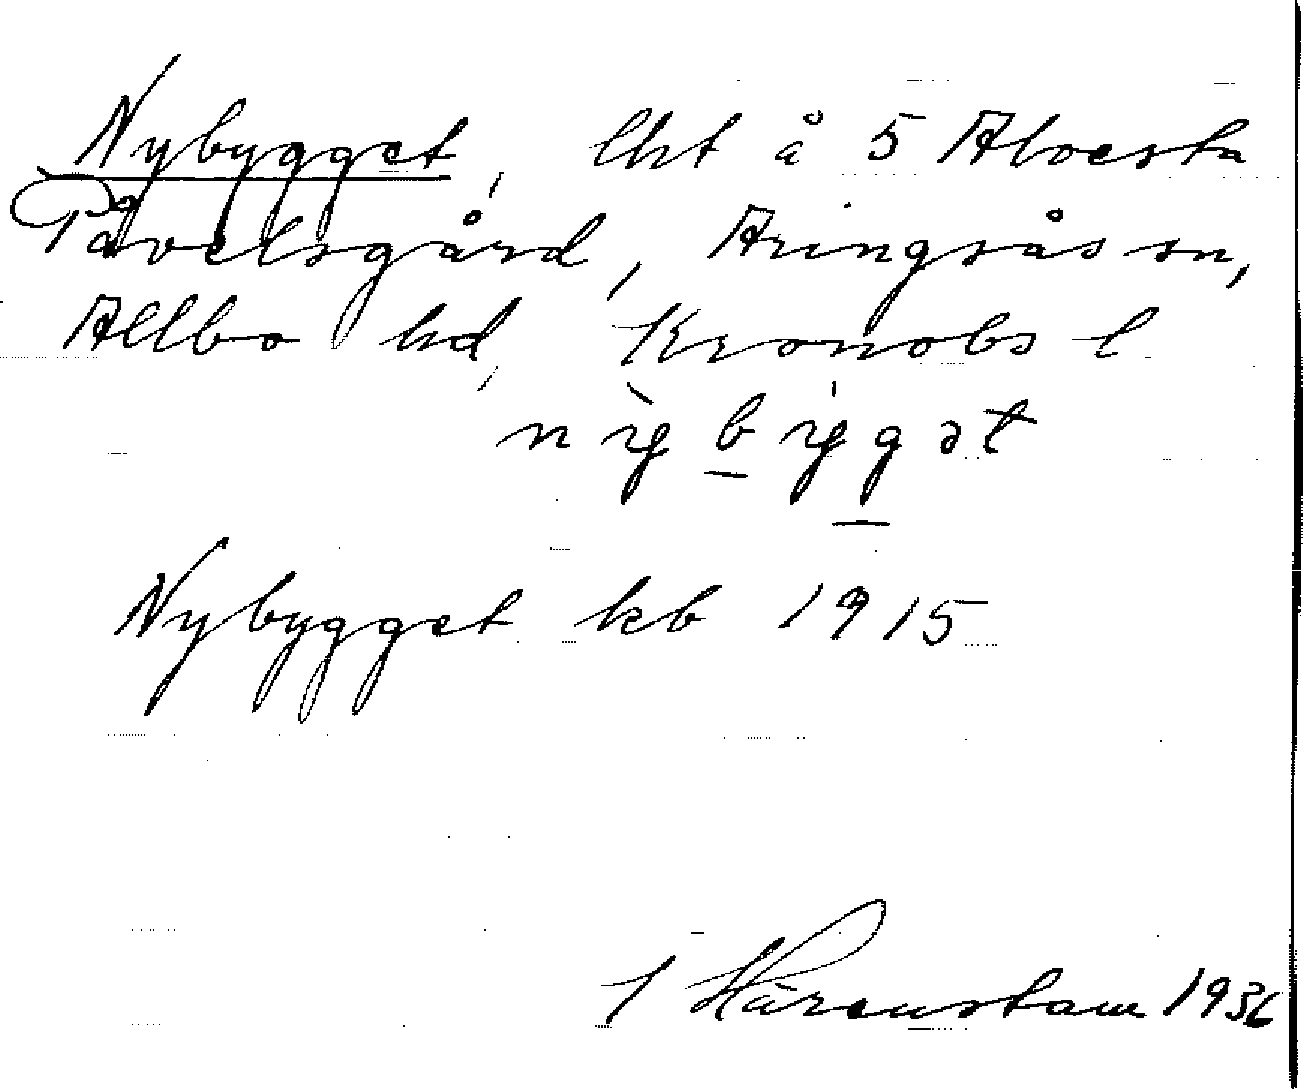 Nybygget, lht å 5 Alvesta
Påvelsgård, Aringsås sn,
Allbo hd, Kronobs l
nỳbýgət
Nybygget kb 1915
I Härenstam 1936